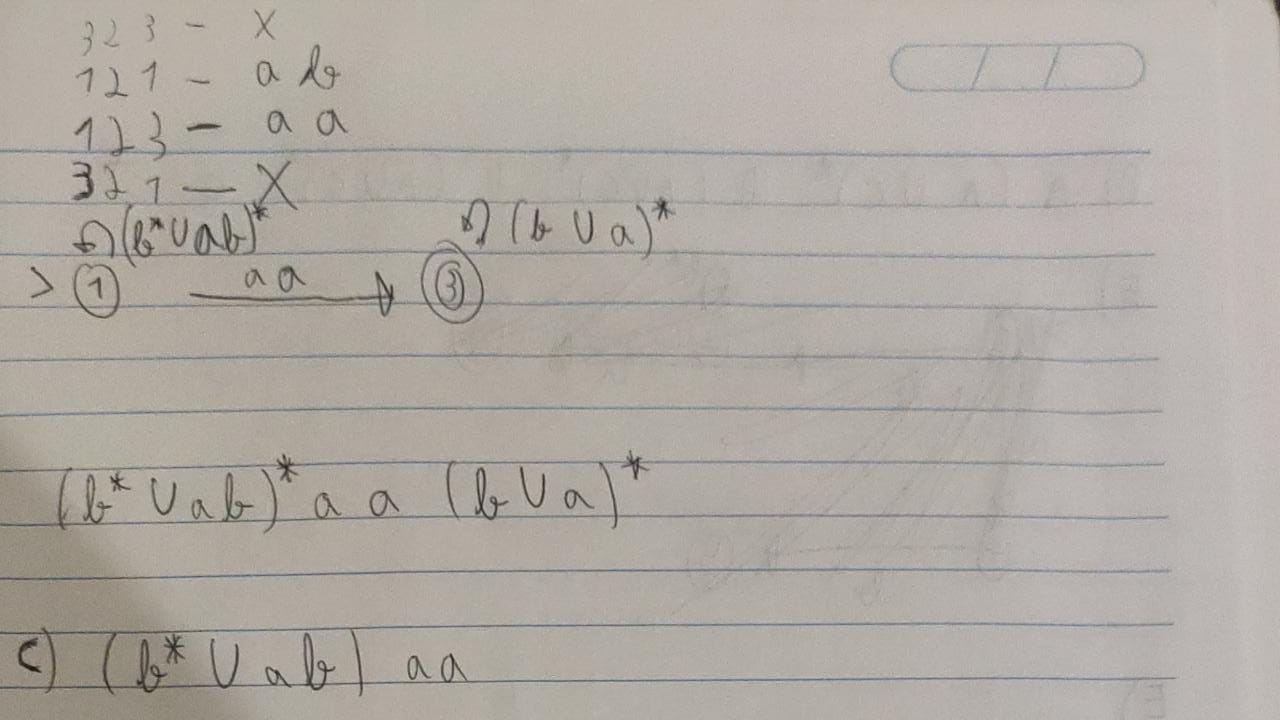 323 - X
121 - ab
123 - aa
321 - X
(b* ∪ ab)* (b ∪ a)*
> 1 aa 3
(b* ∪ ab)* a a (b ∪ a)*
c) (b* ∪ ab) aa